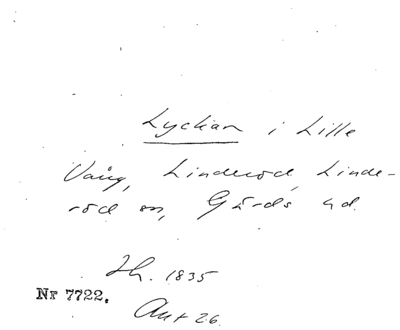 Lyckan i Lille
Vång, Linderöd, Linde-
röd sn, Gärds hd.
Ih. 1835
Nr 7722.
Akt 26.